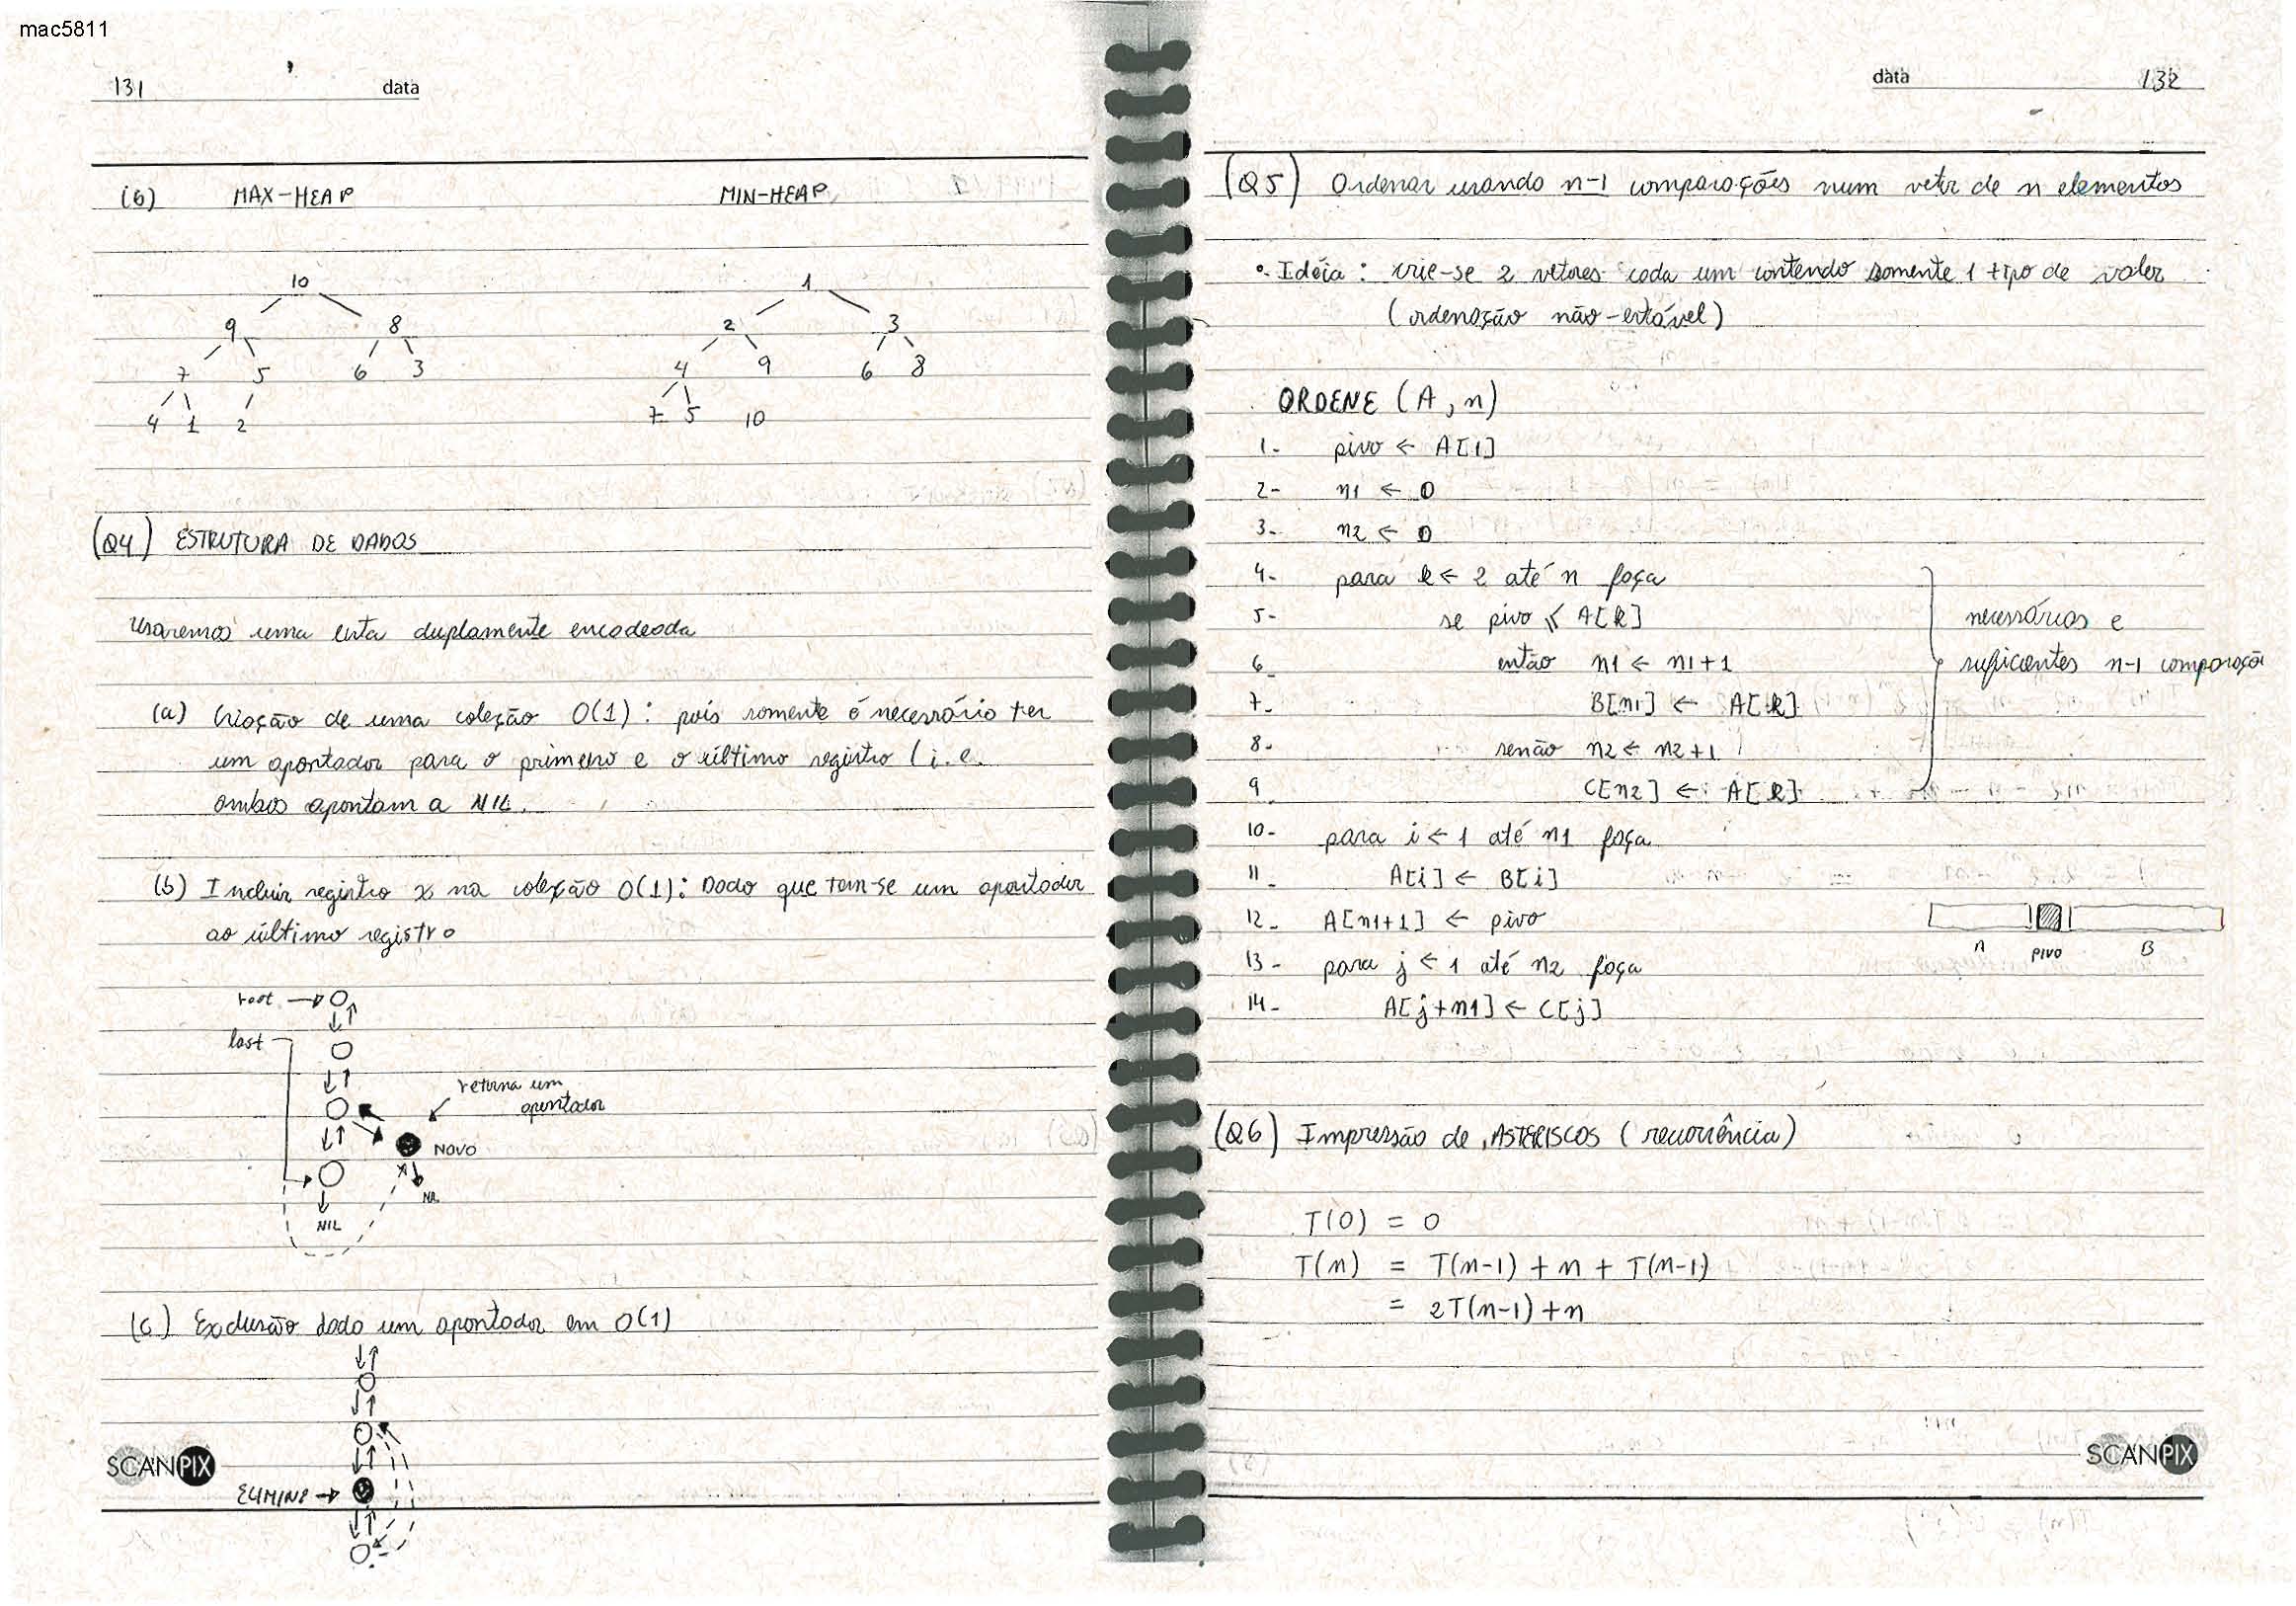 mac5811
131 data
(b) MAX-HEAP MIN-HEAP
10 1
9 8 2 3
7 5 6 3 4 9 6 8
4 1 2 7 5 10
(Q4) ESTRUTURA DE DADOS
Usaremos uma lista duplamente encadeada
(a) Criação de uma coleção O(1): pois somente é necessário ter
um apontador para o primeiro e o último registro (i.e.
ambos apontam a NIL.
(b) Incluir registro x na coleção O(1): Dado que tem-se um apontador
ao último registro
root
last
retorna um
apontador
NOVO
NIL
NIL
(c) Exclusão dado um apontador em O(1)
ELIMINE
SCANPIX
data 132
(Q5) Ordenar usando n-1 comparações num vetor de n elementos
• Idéia: crie-se 2 vetores cada um contendo somente 1 tipo de valor
(ordenação não-estável)
ORDENE (A, n)
1- pivo ← A[1]
2- n1 ← 0
3- n2 ← 0
4- para k ← 2 até n faça
5- se pivo ≤ A[k]
6- então n1 ← n1+1
7- B[n1] ← A[k]
8- senão n2 ← n2+1
9 C[n2] ← A[k]
necessários e
suficientes n-1 comparaçõe
10- para i ← 1 até n1 faça
11- A[i] ← B[i]
12- A[n1+1] ← pivo
13- para j ← 1 até n2 faça
14- A[j+n1] ← C[j]
A PIVO B
(Q6) Impressão de ASTERISCOS (recorrência)
T(0) = 0
T(n) = T(n-1) + n + T(n-1)
= 2T(n-1) + n
SCANPIX